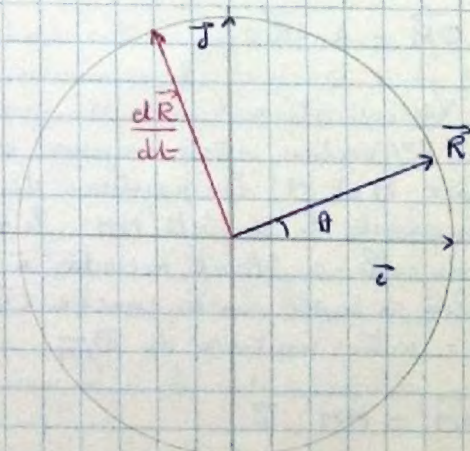 j⃗
dR⃗
dt
R⃗
θ
i⃗